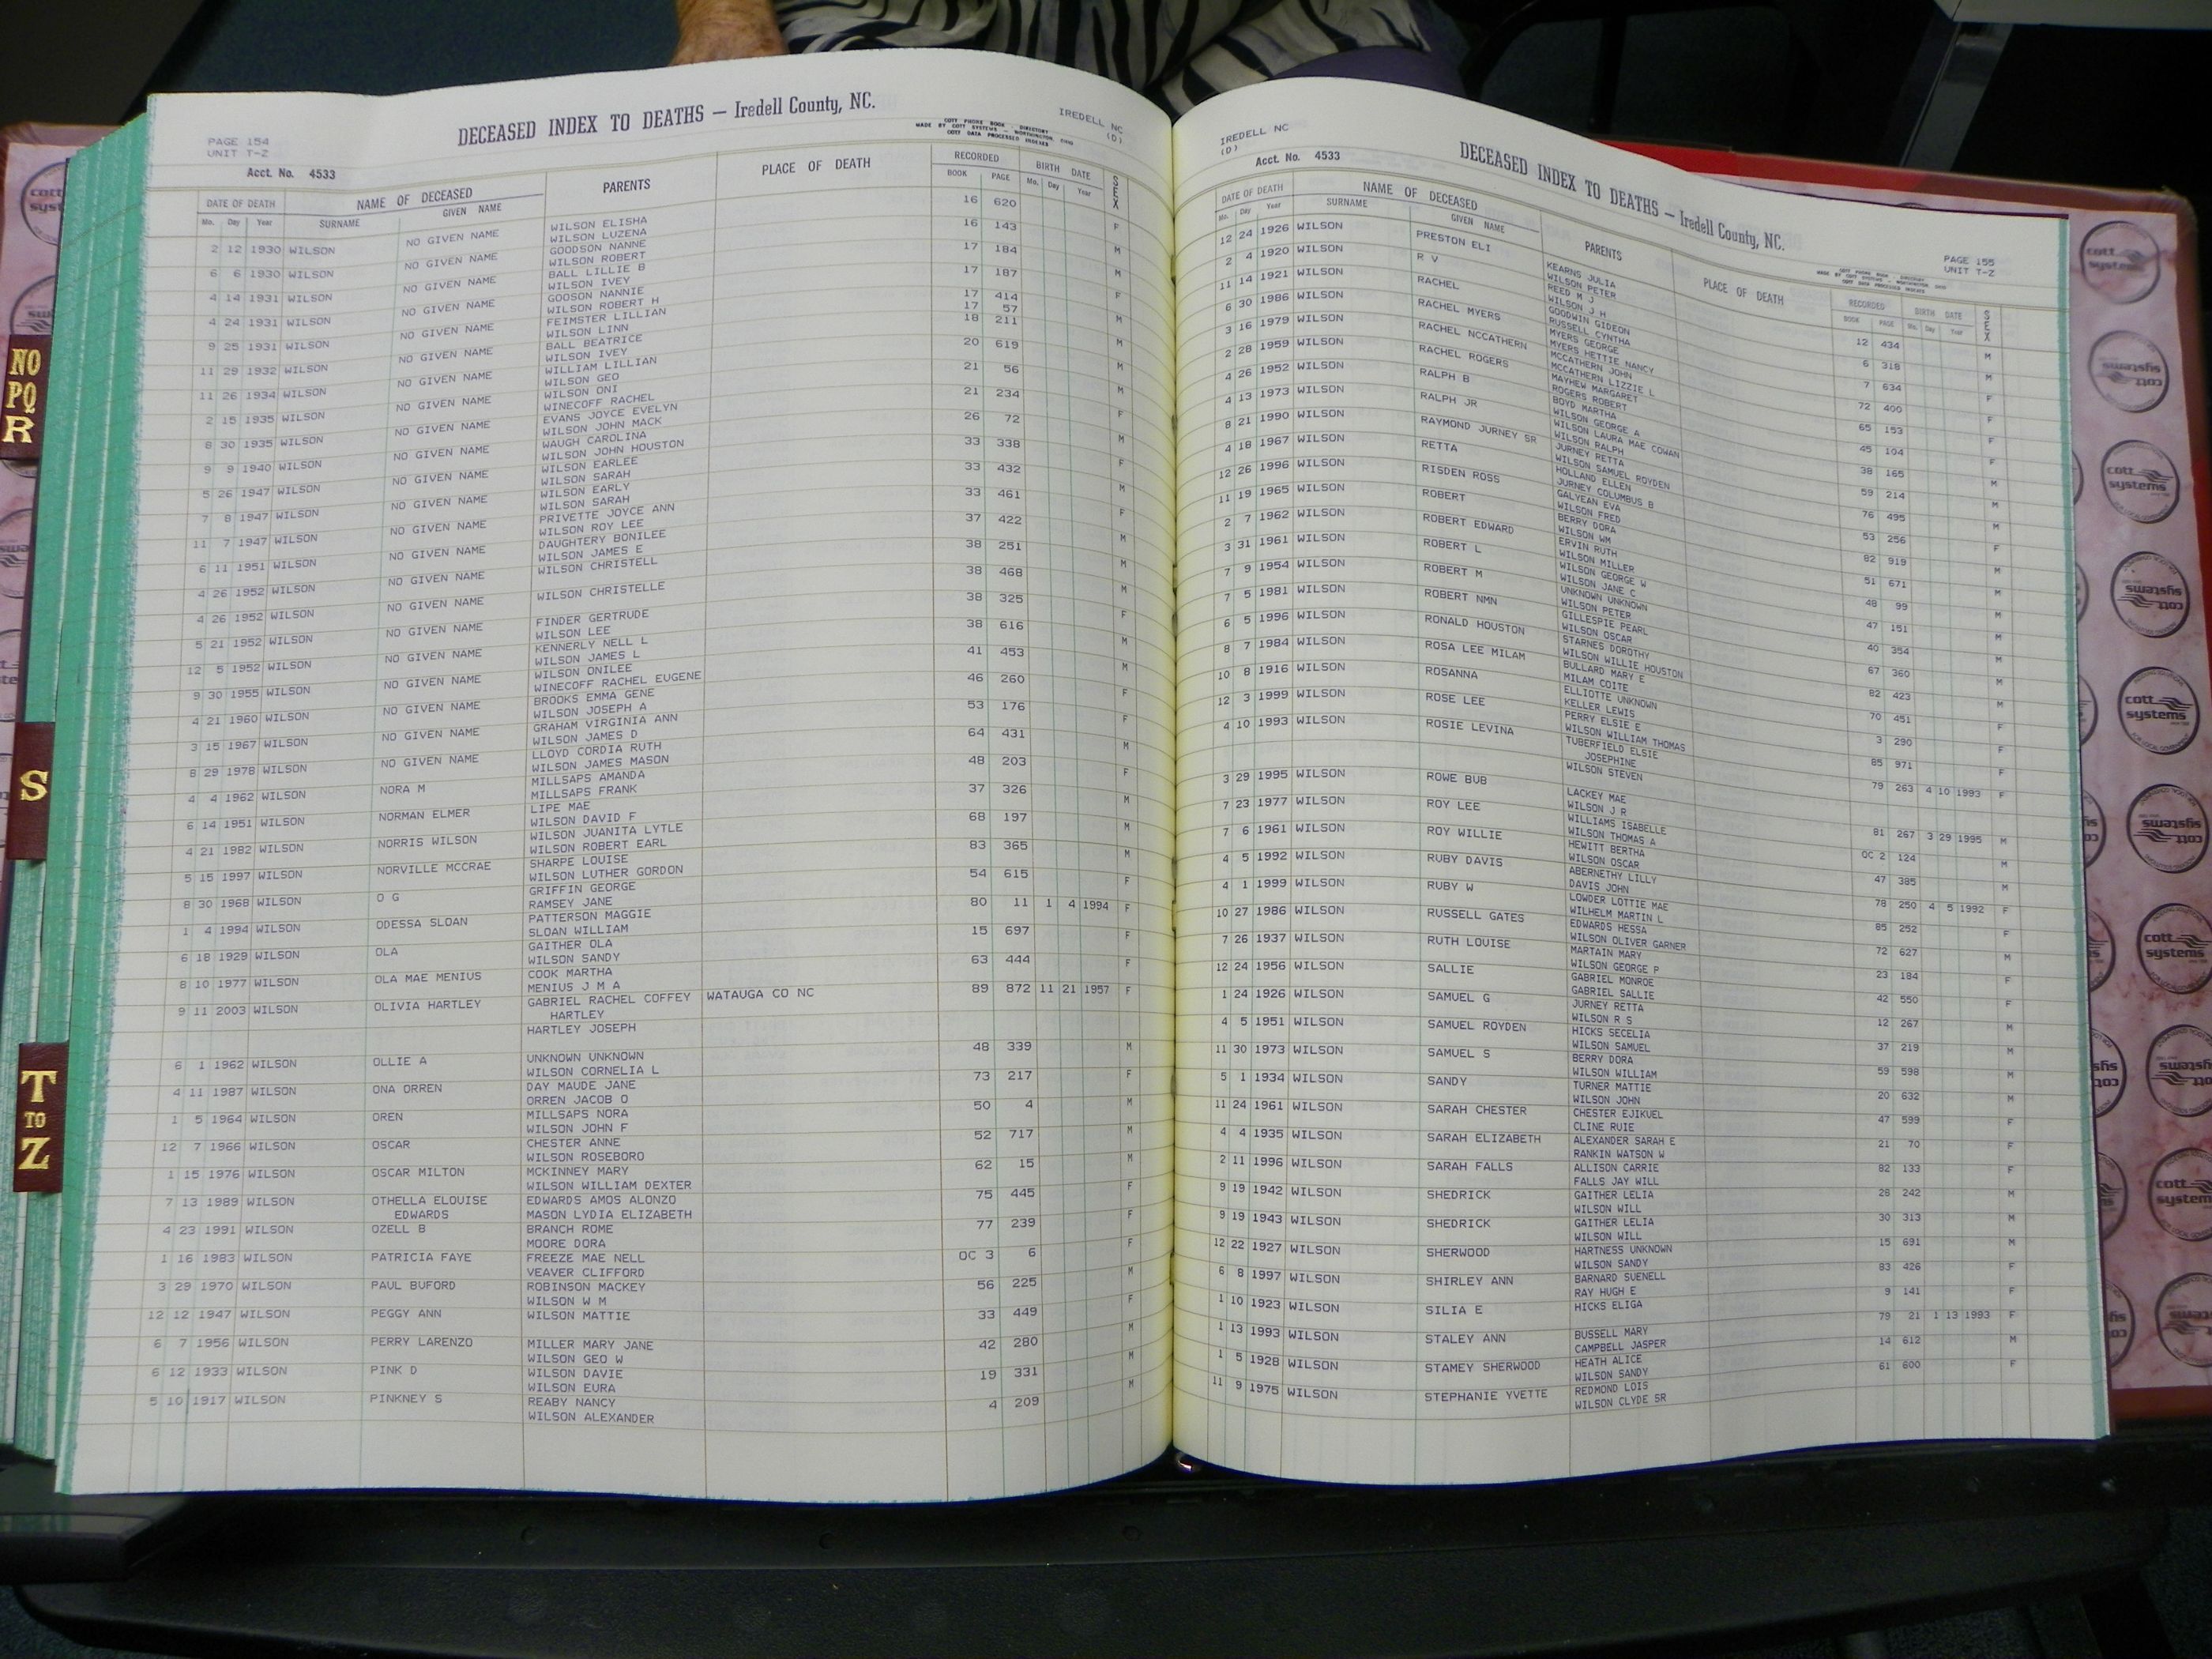 PAGE 154
UNIT T-Z
DECEASED INDEX TO DEATHS — Iredell County, NC.
COTT PHONE BOOK - DIRECTORY
MADE BY COTT SYSTEMS - WORTHINGTON, OHIO
COTT DATA PROCESSED INDEXES
IREDELL NC
(D)
Acct. No. 4533
DATE OF DEATH NAME OF DECEASED PARENTS PLACE OF DEATH RECORDED BIRTH DATE SEX
Mo. Day Year SURNAME GIVEN NAME BOOK PAGE Mo. Day Year
2 12 1930 WILSON NO GIVEN NAME WILSON ELISHA 16 620 F
WILSON LUZENA
6 6 1930 WILSON NO GIVEN NAME GOODSON NANNE 16 143 M
WILSON ROBERT
4 14 1931 WILSON NO GIVEN NAME BALL LILLIE B 17 184 M
WILSON IVEY
4 24 1931 WILSON NO GIVEN NAME GOOSON NANNIE 17 187 F
WILSON ROBERT H
9 25 1931 WILSON NO GIVEN NAME FEIMSTER LILLIAN 17 414 M
WILSON LINN 17 57
11 29 1932 WILSON NO GIVEN NAME BALL BEATRICE 18 211 M
WILSON IVEY
11 26 1934 WILSON NO GIVEN NAME WILLIAM LILLIAN 20 619 M
WILSON GEO
2 15 1935 WILSON NO GIVEN NAME WILSON ONI 21 56 M
WINECOFF RACHEL
8 30 1935 WILSON NO GIVEN NAME EVANS JOYCE EVELYN 21 234 F
WILSON JOHN MACK
9 9 1940 WILSON NO GIVEN NAME WAUGH CAROLINA 26 72 M
WILSON JOHN HOUSTON
5 26 1947 WILSON NO GIVEN NAME WILSON EARLEE 33 338 F
WILSON SARAH
7 8 1947 WILSON NO GIVEN NAME WILSON EARLY 33 432 M
WILSON SARAH
11 7 1947 WILSON NO GIVEN NAME PRIVETTE JOYCE ANN 33 461 F
WILSON ROY LEE
6 11 1951 WILSON NO GIVEN NAME DAUGHTERY BONILEE 37 422 M
WILSON JAMES E
4 26 1952 WILSON NO GIVEN NAME WILSON CHRISTELL 38 251 M
4 26 1952 WILSON NO GIVEN NAME WILSON CHRISTELLE 38 468 M
5 21 1952 WILSON NO GIVEN NAME FINDER GERTRUDE 38 325 F
WILSON LEE
12 5 1952 WILSON NO GIVEN NAME KENNERLY NELL L 38 616 M
WILSON JAMES L
9 30 1955 WILSON NO GIVEN NAME WILSON ONILEE 41 453 M
WINECOFF RACHEL EUGENE
4 21 1960 WILSON NO GIVEN NAME BROOKS EMMA GENE 46 260 F
WILSON JOSEPH A
3 15 1967 WILSON NO GIVEN NAME GRAHAM VIRGINIA ANN 53 176 F
WILSON JAMES D
8 29 1978 WILSON NO GIVEN NAME LLOYD CORDIA RUTH 64 431 M
WILSON JAMES MASON
4 4 1962 WILSON NORA M MILLSAPS AMANDA 48 203 F
MILLSAPS FRANK
6 14 1951 WILSON NORMAN ELMER LIPE MAE 37 326 M
WILSON DAVID F
4 21 1982 WILSON NORRIS WILSON WILSON JUANITA LYTLE 68 197 M
WILSON ROBERT EARL
5 15 1997 WILSON NORVILLE MCCRAE SHARPE LOUISE 83 365 M
WILSON LUTHER GORDON
8 30 1968 WILSON O G GRIFFIN GEORGE 54 615 F
RAMSEY JANE
1 4 1994 WILSON ODESSA SLOAN PATTERSON MAGGIE 80 11 1 4 1994 F
SLOAN WILLIAM
6 18 1929 WILSON OLA GAITHER OLA 15 697 F
WILSON SANDY
8 10 1977 WILSON OLA MAE MENIUS COOK MARTHA 63 444 F
MENIUS J M A
9 11 2003 WILSON OLIVIA HARTLEY GABRIEL RACHEL COFFEY WATAUGA CO NC 89 872 11 21 1957 F
HARTLEY
HARTLEY JOSEPH
6 1 1962 WILSON OLLIE A UNKNOWN UNKNOWN 48 339 M
WILSON CORNELIA L
4 11 1987 WILSON ONA ORREN DAY MAUDE JANE 73 217 F
ORREN JACOB O
1 5 1964 WILSON OREN MILLSAPS NORA 50 4 M
WILSON JOHN F
12 7 1966 WILSON OSCAR CHESTER ANNE 52 717 M
WILSON ROSEBORO
1 15 1976 WILSON OSCAR MILTON MCKINNEY MARY 62 15 M
WILSON WILLIAM DEXTER
7 13 1989 WILSON OTHELLA ELOUISE EDWARDS AMOS ALONZO 75 445 F
EDWARDS MASON LYDIA ELIZABETH
4 23 1991 WILSON OZELL B BRANCH ROME 77 239 F
MOORE DORA
1 16 1983 WILSON PATRICIA FAYE FREEZE MAE NELL OC 3 6 F
VEAVER CLIFFORD
3 29 1970 WILSON PAUL BUFORD ROBINSON MACKEY 56 225 M
WILSON W M
12 12 1947 WILSON PEGGY ANN WILSON MATTIE 33 449 F
6 7 1956 WILSON PERRY LARENZO MILLER MARY JANE 42 280 M
WILSON GEO W
6 12 1933 WILSON PINK D WILSON DAVIE 19 331 M
WILSON EURA
5 10 1917 WILSON PINKNEY S REABY NANCY 4 209 M
WILSON ALEXANDER
IREDELL NC
(D)
DECEASED INDEX TO DEATHS — Iredell County, NC.
PAGE 155
UNIT T-Z
COTT PHONE BOOK - DIRECTORY
MADE BY COTT SYSTEMS - WORTHINGTON, OHIO
COTT DATA PROCESSED INDEXES
Acct. No. 4533
DATE OF DEATH NAME OF DECEASED PARENTS PLACE OF DEATH RECORDED BIRTH DATE SEX
Mo. Day Year SURNAME GIVEN NAME BOOK PAGE Mo. Day Year
12 24 1926 WILSON PRESTON ELI KEARNS JULIA 12 434 M
WILSON PETER
2 4 1920 WILSON R V REED M J 6 318 M
WILSON J H
11 14 1921 WILSON RACHEL GOODWIN GIDEON 7 634 F
RUSSELL CYNTHA
6 30 1986 WILSON RACHEL MYERS MYERS GEORGE 72 400 F
MYERS HETTIE NANCY
3 16 1979 WILSON RACHEL NCCATHERN MCCATHERN JOHN 65 153 F
MCCATHERN LIZZIE L
2 28 1959 WILSON RACHEL ROGERS MAYHEW MARGARET 45 104 F
ROGERS ROBERT
4 26 1952 WILSON RALPH B BOYD MARTHA 38 165 M
WILSON GEORGE A
4 13 1973 WILSON RALPH JR WILSON LAURA MAE COWAN 59 214 M
WILSON RALPH
8 21 1990 WILSON RAYMOND JURNEY SR JURNEY RETTA 76 495 M
WILSON SAMUEL ROYDEN
4 18 1967 WILSON RETTA HOLLAND ELLEN 53 256 F
JURNEY COLUMBUS B
12 26 1996 WILSON RISDEN ROSS GALYEAN EVA 82 919 M
WILSON FRED
11 19 1965 WILSON ROBERT BERRY DORA 51 671 M
WILSON WM
2 7 1962 WILSON ROBERT EDWARD ERVIN RUTH 48 99 M
WILSON MILLER
3 31 1961 WILSON ROBERT L WILSON GEORGE W 47 151 M
WILSON JANE C
7 9 1954 WILSON ROBERT M UNKNOWN UNKNOWN 40 354 M
WILSON PETER
7 5 1981 WILSON ROBERT NMN GILLESPIE PEARL 67 360 M
WILSON OSCAR
6 5 1996 WILSON RONALD HOUSTON STARNES DOROTHY 82 423 M
WILSON WILLIE HOUSTON
8 7 1984 WILSON ROSA LEE MILAM BULLARD MARY E 70 451 F
MILAM COITE
10 8 1916 WILSON ROSANNA ELLIOTTE UNKNOWN 3 290 F
KELLER LEWIS
12 3 1999 WILSON ROSE LEE PERRY ELSIE E 85 971 F
WILSON WILLIAM THOMAS
4 10 1993 WILSON ROSIE LEVINA TUBERFIELD ELSIE 79 263 4 10 1993 F
JOSEPHINE
WILSON STEVEN
3 29 1995 WILSON ROWE BUB LACKEY MAE 81 267 3 29 1995 M
WILSON J R
7 23 1977 WILSON ROY LEE WILLIAMS ISABELLE OC 2 124 M
WILSON THOMAS A
7 6 1961 WILSON ROY WILLIE HEWITT BERTHA 47 385 M
WILSON OSCAR
4 5 1992 WILSON RUBY DAVIS ABERNETHY LILLY 78 250 4 5 1992 F
DAVIS JOHN
4 1 1999 WILSON RUBY W LOWDER LOTTIE MAE 85 252 F
WILHELM MARTIN L
10 27 1986 WILSON RUSSELL GATES EDWARDS HESSA 72 627 M
WILSON OLIVER GARNER
7 26 1937 WILSON RUTH LOUISE MARTAIN MARY 23 184 F
WILSON GEORGE P
12 24 1956 WILSON SALLIE GABRIEL MONROE 42 550 F
GABRIEL SALLIE
1 24 1926 WILSON SAMUEL G JURNEY RETTA 12 267 M
WILSON R S
4 5 1951 WILSON SAMUEL ROYDEN HICKS SECELIA 37 219 M
WILSON SAMUEL
11 30 1973 WILSON SAMUEL S BERRY DORA 59 598 M
WILSON WILLIAM
5 1 1934 WILSON SANDY TURNER MATTIE 20 632 M
WILSON JOHN
11 24 1961 WILSON SARAH CHESTER CHESTER EJIKUEL 47 599 F
CLINE RUIE
4 4 1935 WILSON SARAH ELIZABETH ALEXANDER SARAH E 21 70 F
RANKIN WATSON W
2 11 1996 WILSON SARAH FALLS ALLISON CARRIE 82 133 F
FALLS JAY WILL
9 19 1942 WILSON SHEDRICK GAITHER LELIA 28 242 M
WILSON WILL
9 19 1943 WILSON SHEDRICK GAITHER LELIA 30 313 M
WILSON WILL
12 22 1927 WILSON SHERWOOD HARTNESS UNKNOWN 15 691 M
WILSON SANDY
6 8 1997 WILSON SHIRLEY ANN BARNARD SUENELL 83 426 F
RAY HUGH E
1 10 1923 WILSON SILIA E HICKS ELIGA 9 141 F
1 13 1993 WILSON STALEY ANN BUSSELL MARY 79 21 1 13 1993 F
CAMPBELL JASPER
1 5 1928 WILSON STAMEY SHERWOOD HEATH ALICE 14 612 M
WILSON SANDY
11 9 1975 WILSON STEPHANIE YVETTE REDMOND LOIS 61 600 F
WILSON CLYDE SR
NO
PQ
R
S
T
TO
Z
cott
systems
cott
systems
cott
systems
cott
systems